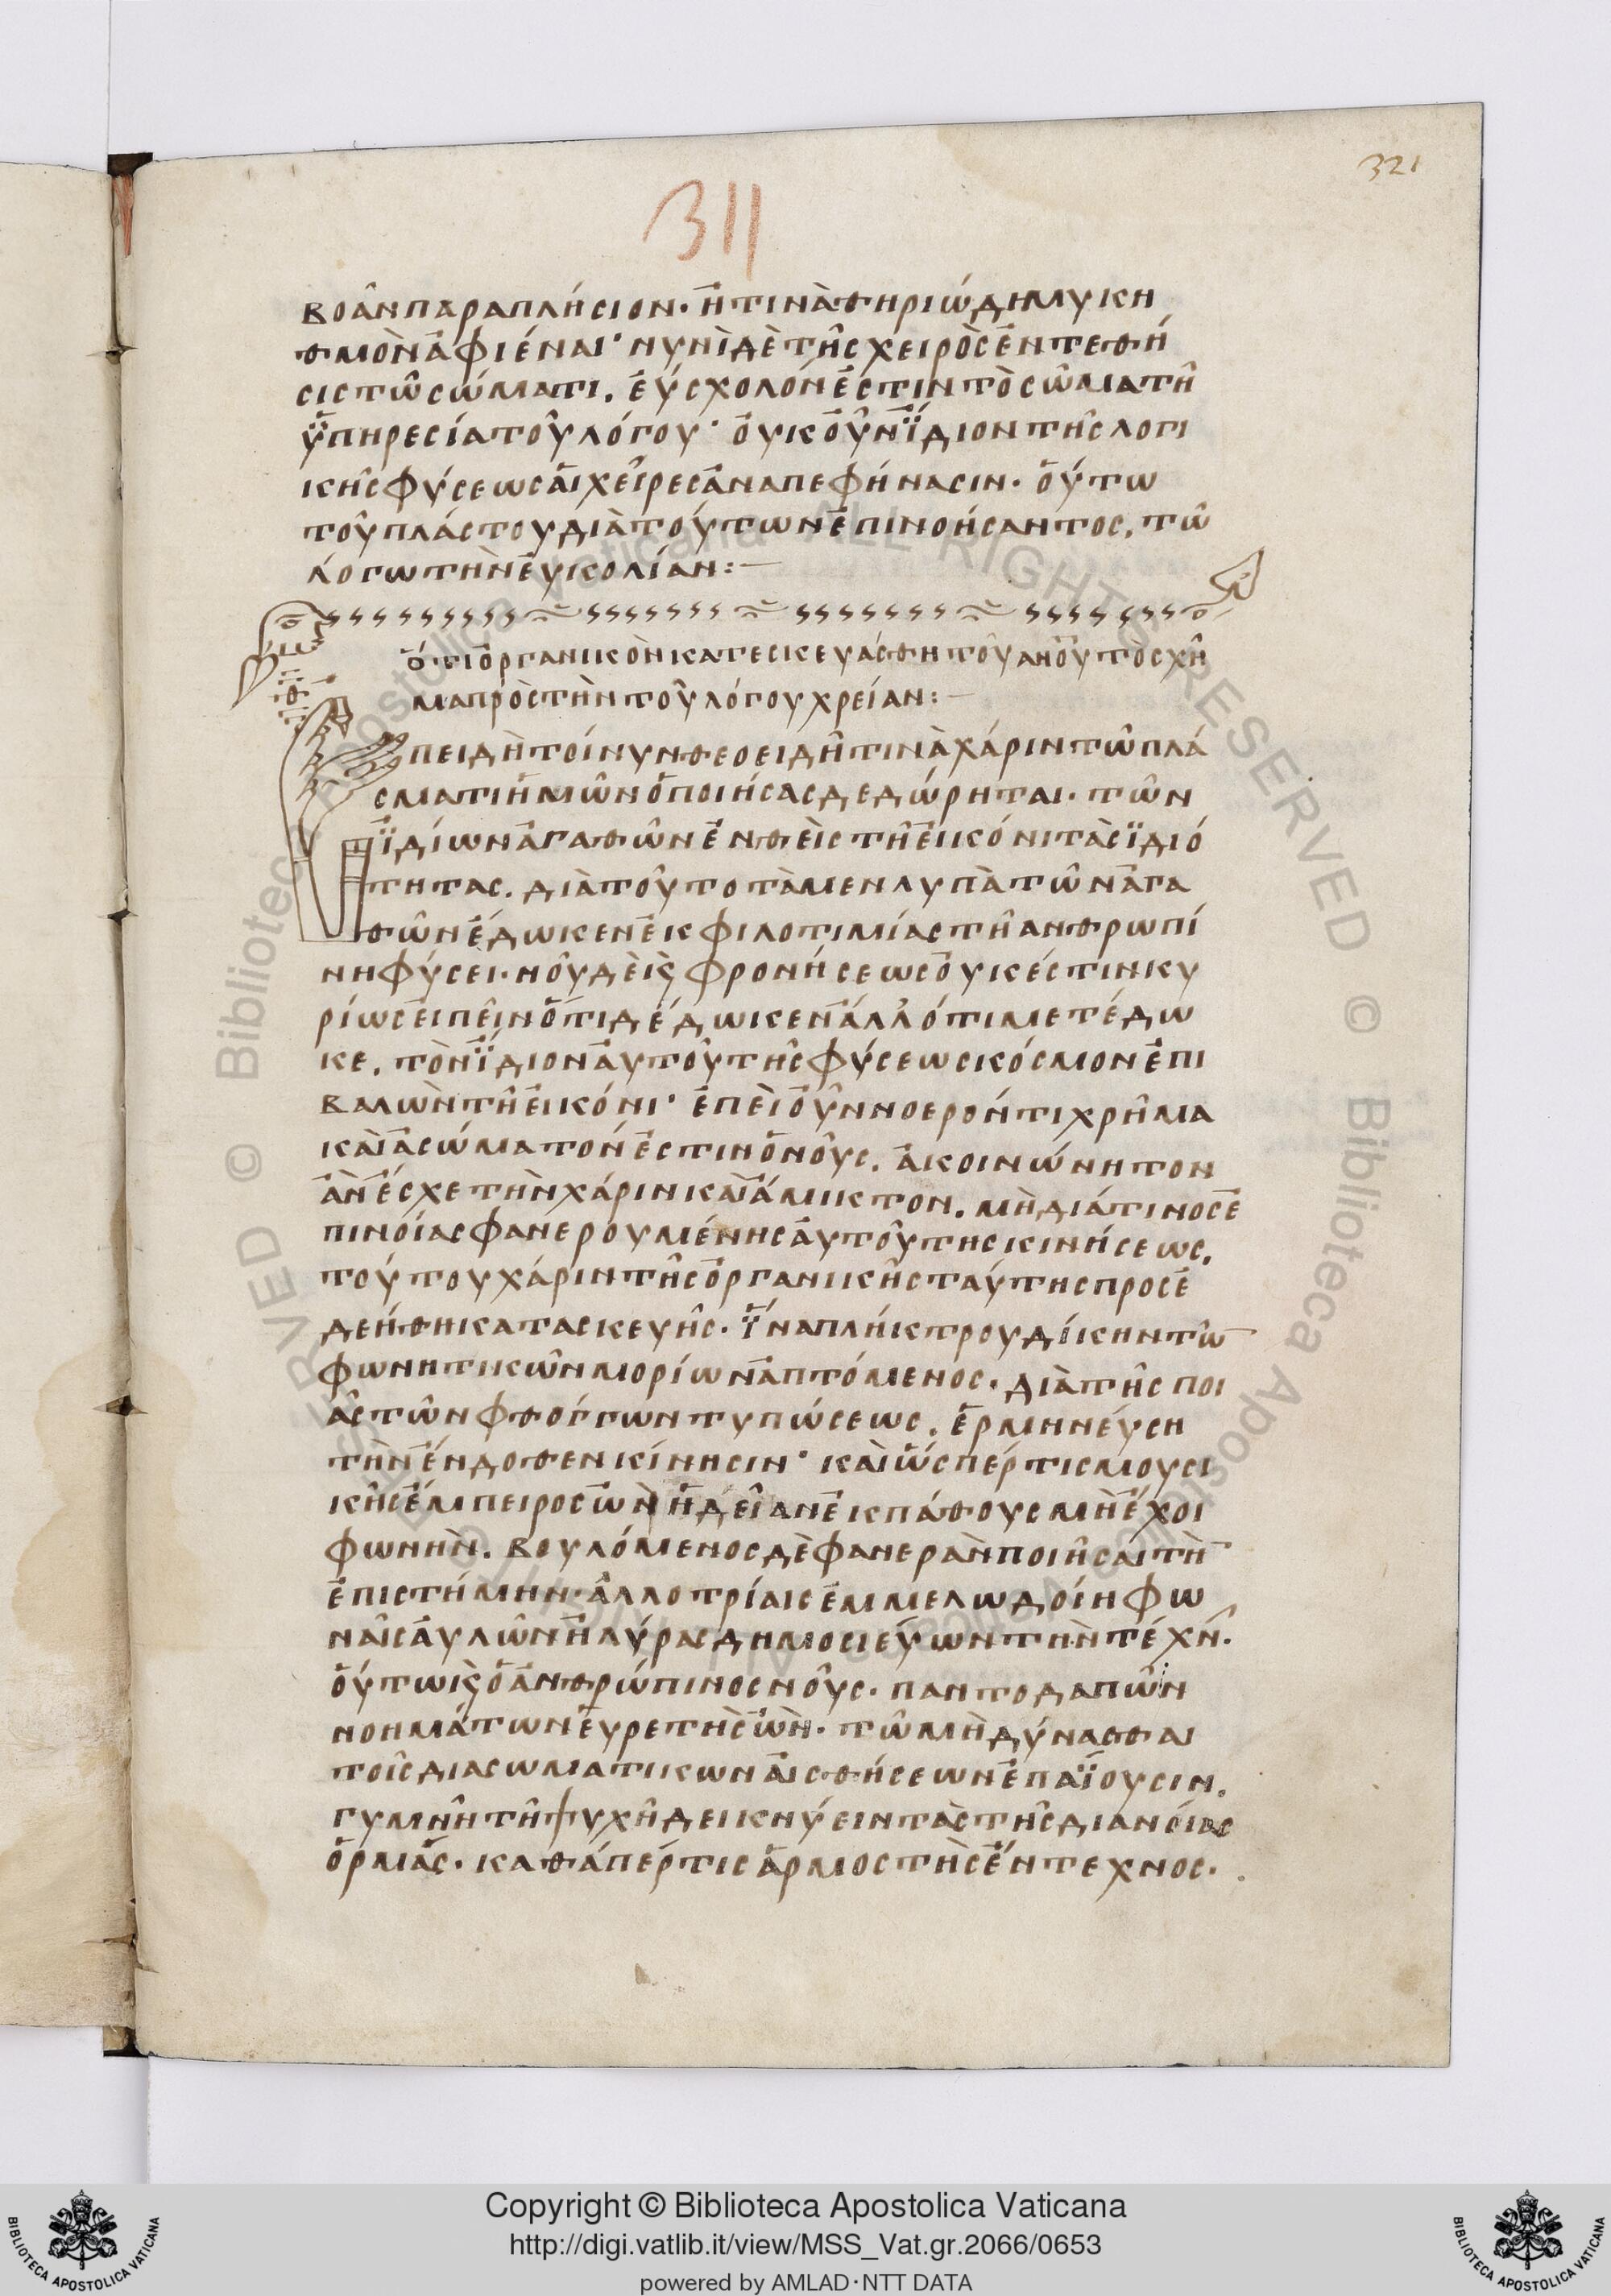 321
311
βοᾶν παραπλήσιον· ἤ τινὰ θηριώδη μυκη
θμὸν ἀφιέναι· νυνὶ δὲ τῆς χειρὸς ἐντεθή
σις τῶ σώματι. ἐύσχολόν ἐστιν τὸ σῶμα τῆ
ϋπηρεσία τοῦ λόγου· ὀυκοῦν ἴδιον τῆς λογι
κῆς φύσεως ἀι χεῖρες ἀναπεφήνασιν· ὁύτω
τοῦ πλάστου διὰ τούτων ἐπινοήσαντος, τῶ
λόγω τὴν ἐυκολίαν:—
ὅτι ὀργανικὸν κατεσκευάσθη τοῦ ανου τὸ σχῆ
μα πρὸς τὴν τοῦ λόγου χρείαν:—
Ἐπειδὴ τοίνυν θεοειδῆ τινὰ χάριν τῶ πλά
σματι ἡμῶν ὁ ποιήσας δεδώρηται· τῶν
ϊδίων ἀγαθῶν ἐνθεὶς τῆ ἐικόνι τὰς ϊδιό
τητας. διὰ τοῦτο τὰ μεν λυπὰ τῶν ἀγα
θῶν ἔδωκεν ἐκ φιλοτιμίας τῆ ανθρωπί
νη φύσει· νοῦ δὲ ϗ φρονήσεως ὀυκ έστιν κυ
ρίως ἐιπεῖν ὅτι δέδωκεν ἀλλ' ότι μετέδω
κε, τὸν ἴδιον ἀυτοῦ τῆς φύσεως κόσμον ἐπι
βαλὼν τῆ ἐικόνι· ἐπεὶ οὖν νοερόν τι χρῆμα
καὶ ἀσώματόν ἐστιν ὁ νοῦς. ἀκοινώνητον
ἂν ἔσχε τὴν χάριν καὶ άμικτον. μὴ διά τινος ἐ
πινοίας φανερουμένης ἀυτοῦ της κινήσεως.
τούτου χάριν τῆς ὀργανικῆς ταύτης προσε
δεήθη κατασκευῆς· ϊνα πλήκτρου δίκην τῶ
φωνητικῶν μορίων ἁπτόμενος. διὰ τῆς ποι
ᾶς τῶν φθόγγων τυπώσεως. ἑρμηνέυση
τὴν ἔνδοθεν κίνησιν· καὶ ὥσπέρ τις μουσι
κῆς ἔμπειρος ὢν ἢ δεῖ αν ἐκ πάθους μὴ ἔχοι
φωνὴν. βουλόμενος δὲ φανερὰν ποιῆσαι τὴ
ἐπιστήμην· ἀλλοτρίαις ἐμμελωδοίη φω
ναῖς ἀυλῶν ἢ λύρας δημοσιεύων τὴν τέχν.
ὁύτω ϗ ὁ ἀνθρώπινος νοῦς· παντοδαπῶν
νοημάτων ἑυρετὴς ὢν· τῶ μὴ δύνασθαι
τοῖς δια σωματικων ἀισθήσεων ἐπαΐουσιν.
γυμνῆ τῆ ψυχῆ δεικνύειν τὰς τῆς διανόιας
ὁρμάς· καθάπέρ τις ἁρμοστὴς ἔντεχνος·
Copyright © Biblioteca Apostolica Vaticana
http://digi.vatlib.it/view/MSS_Vat.gr.2066/0653
powered by AMLAD·NTT DATA